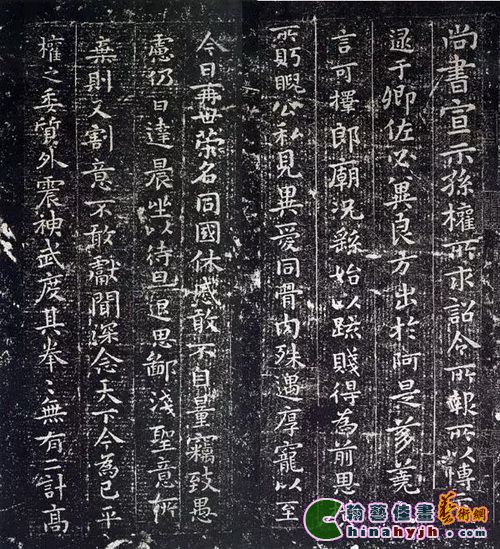 尚書宣示孫權所求詔令所報所以博
逮于卿佐必冀良方出於阿是芻蕘
言可擇郎廟況繇始以疏賤得為前恩
所眄睨公私見異愛同骨肉殊遇厚寵以至
今日再世榮名同國休慼敢不自量竊致愚
慮仍日達晨坐以待旦退思鄙淺聖意所
棄則又割意不敢獻聞深念天下今為已平
權之委質外震神武度其拳〻無有二計高
翰藝佳畫藝術網
Chinahyjh.com